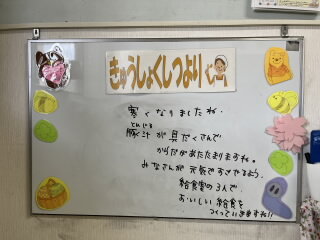 きゅうしょくしつより
寒くなりましたね。
とんじる
豚汁が具だくさんで
からだがあたたまりますね。
みなさんが元気ですごせるよう、
給食室の3人で、
おいしい給食を
つくっていきますね!!